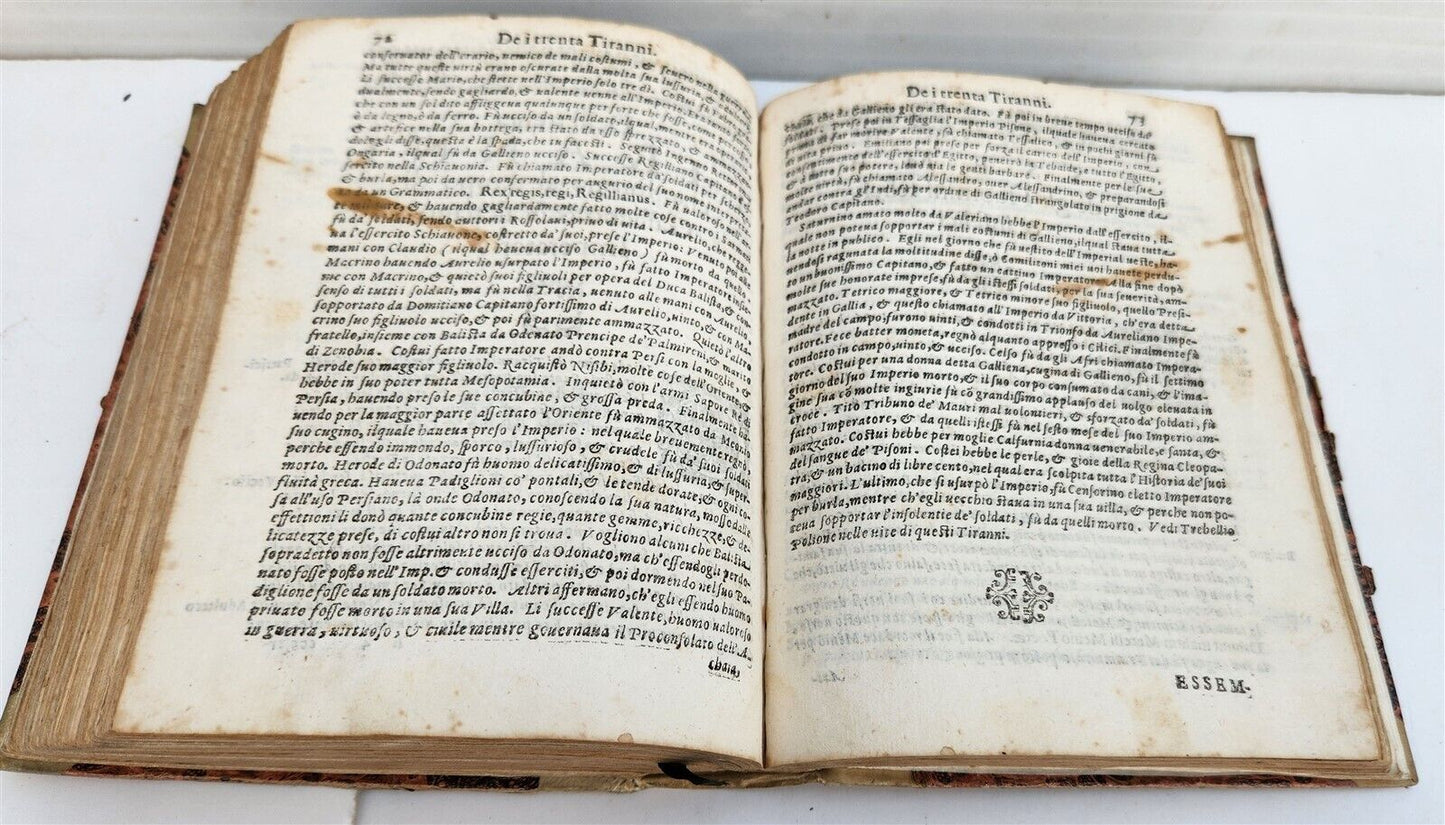 72 De i trenta Tiranni.
conservator dell'erario, nemico de mali costumi, & severo nella guerra
Ma tutte queste virtù erano oscurate dalla molta sua lussuria, &
Li successe Mario, che stette nell'Imperio solo tre dì. Costui fù
dualmente, sendo gagliardo, & valente uenne all'Imperio.
che con un soldito affliggeua qualunque per forte che fosse, come
ò da legno, ò da ferro. Fù ucciso da un soldato, ilqual, mentre
& artefice nella sua bottega, era stato da esso sprezzato, &
dogli disse, questa è la spada, che tu facesti. Seguitò Ingenuo
Ongaria, ilqual fù da Gallieno ucciso. Successe Regilliano Capitano
sercito nella Schiauonia. Fù chiamato Imperatore da' soldati per
& burla, ma poi da uero confermato per augurio del suo nome interpre-
da un Grammatico. Rex regis, regi, Regillianus. Fù valoroso nell'ar
te militare, & hauendo gagliardamente fatto molte cose contro i Sarmati
fù da' soldati, sendo auttori i Rossolani, priuo di uita. Aurelio, che regge-
ua l'essercito Schiauone, costretto da' suoi, prese l'Imperio: Venuto poi alle
mani con Claudio (ilqual haueua ucciso Gallieno) fù morto da quello.
Macrino hauendo Aurelio usurpato l'Imperio, fù fatto Imperatore insie-
me con Macrino, & quietò suoi figliuoli per opera del Duca Balista, & con
senso di tutti i soldati, ma fù nella Tracia, uenuto alle mani con Aurelio,
sopportato da Domitiano Capitano fortissimo di Aurelio, uinto, & con Ma-
crino suo figliuolo ucciso, & poi fù parimente ammazzato. Quietò l'altro
fratello, insieme con Balista da Odenato Prencipe de' Palmireni, & marito
di Zenobia. Costui fatto Imperatore andò contra Persi con la moglie, &
Herode suo maggior figliuolo. Racquistò Nisibi, molte cose dell'Oriente, &
hebbe in suo poter tutta Mesopotamia. Inquietò con l'armi Sapore Rè di
Persia, hauendo preso le sue concubine, & grossa preda. Finalmente ha-
uendo per la maggior parte assettato l'Oriente fù ammazzato da Meonio
suo cugino, ilquale haueua preso l'Imperio: nel quale breuemente regnò,
perche essendo immondo, sporco, lussurioso, & crudele fù da' suoi soldati
morto. Herode di Odonato fù huomo delicatissimo, & di lussuria, & super-
fluità greca. Haueua Padiglioni co' pontali, & le tende dorate, & ogni co-
sa all'uso Persiano, là onde Odonato, conoscendo la sua natura, mosso dall'-
effettioni li donò quante concubine regie, quante gemme, ricchezze, & de-
licatezze prese, di costui altro non si troua. Vogliono alcuni che Balista
sopradetto non fosse altrimente ucciso da Odonato, ma ch'essendogli perdo-
nato fosse posto nell'Imp. & condusse esserciti, & poi dormendo nel suo Pa-
diglione fosse da un soldato morto. Altri affermano, ch'egli essendo huomo
priuato fosse morto in una sua Villa. Li successe Valente, huomo ualoroso
in guerra, uirtuoso, & ciuile mentre gouernaua il Proconsolato dell'A-
chaia,
De i trenta Tiranni. 73
chaia, che da Gallieno gli era stato dato. Fù poi in breue tempo ucciso da'
soldati. Prese poi in Tessaglia l'Imperio Pisone, ilquale hauena cercato
far morire Valente, fù chiamato Tessalico, & in pochi giorni fù
di uita priuo. Emiliano poi prese per forza il carico dell'Imperio, col
consentimento dell'essercito d'Egitto, penetrò la Tebaide, e tutto l'Egitto,
& a suo potere, leuò uia le genti barbare. Finalmente per le sue
molte uirtù, fù chiamato Alessandro, ouer Alessandrino, & preparandosi
andar contra gl'Indi, fù per ordine di Gallieno strangolato in prigione da
Teodoro Capitano.
Saturnino amato molto da Valeriano hebbe l'Imperio dall'essercito, il-
quale non potena sopportar i mali costumi di Gallieno, ilqual staua tutta
la notte in publico. Egli nel giorno che fù uestito dell'Imperial ueste, ha-
mendosi ragunata la moltitudine disse, ò Comilitoni miei uoi hauete perdu-
to un buonissimo Capitano, & fatto un cattiuo Imperatore. Alla fine dopò
molte sue honorate imprese, fù da gl'istessi soldati, per la sua seuerità, am-
mazzato. Tetrico maggiore, & Tetrico minore suo figliuolo, quello Presi-
dente in Gallia, & questo chiamato all'Imperio da Vittoria, ch'era detta
madre del campo, furono uinti, & condotti in Trionfo da Aureliano Impe-
ratore. Fece batter moneta, regnò alquanto appresso i Cilici. Finalmente fù
condotto in campo, uinto, & ucciso. Celso fù da gli Afri chiamato Impera-
tore. Costui per una donna detta Galliena, cugina di Gallieno, fù il settimo
giorno del suo Imperio morto, & il suo corpo consumato da cani, & l'ima-
gine sua cō molte ingiurie fù cō grandissimo applauso del uolgo eleuata in
croce. Titò Tribuno de' Mauri mal uolontieri, & sforzato da' soldati, fù
fatto Imperatore, & da quelli istessi fù nel sesto mese del suo Imperio am-
mazzato. Costui hebbe per moglie Calfurnia donna uenerabile, e santa, &
del sangue de' Pisoni. Costei hebbe le perle, & gioie della Regina Cleopa-
tra, & un bacino di libre cento, nel qual era scolpita tutta l'Historia de' suoi
maggiori. L'ultimo, che si usurpò l'Imperio, fù Censorino eletto Imperatore
per burla, mentre ch'egli uecchio staua in una sua uilla, & perche non po-
teua sopportar l'insolentie de' soldati, fù da quelli morto. Vedi Trebellio
Polione nelle uite di questi Tiranni.
ESSEM-